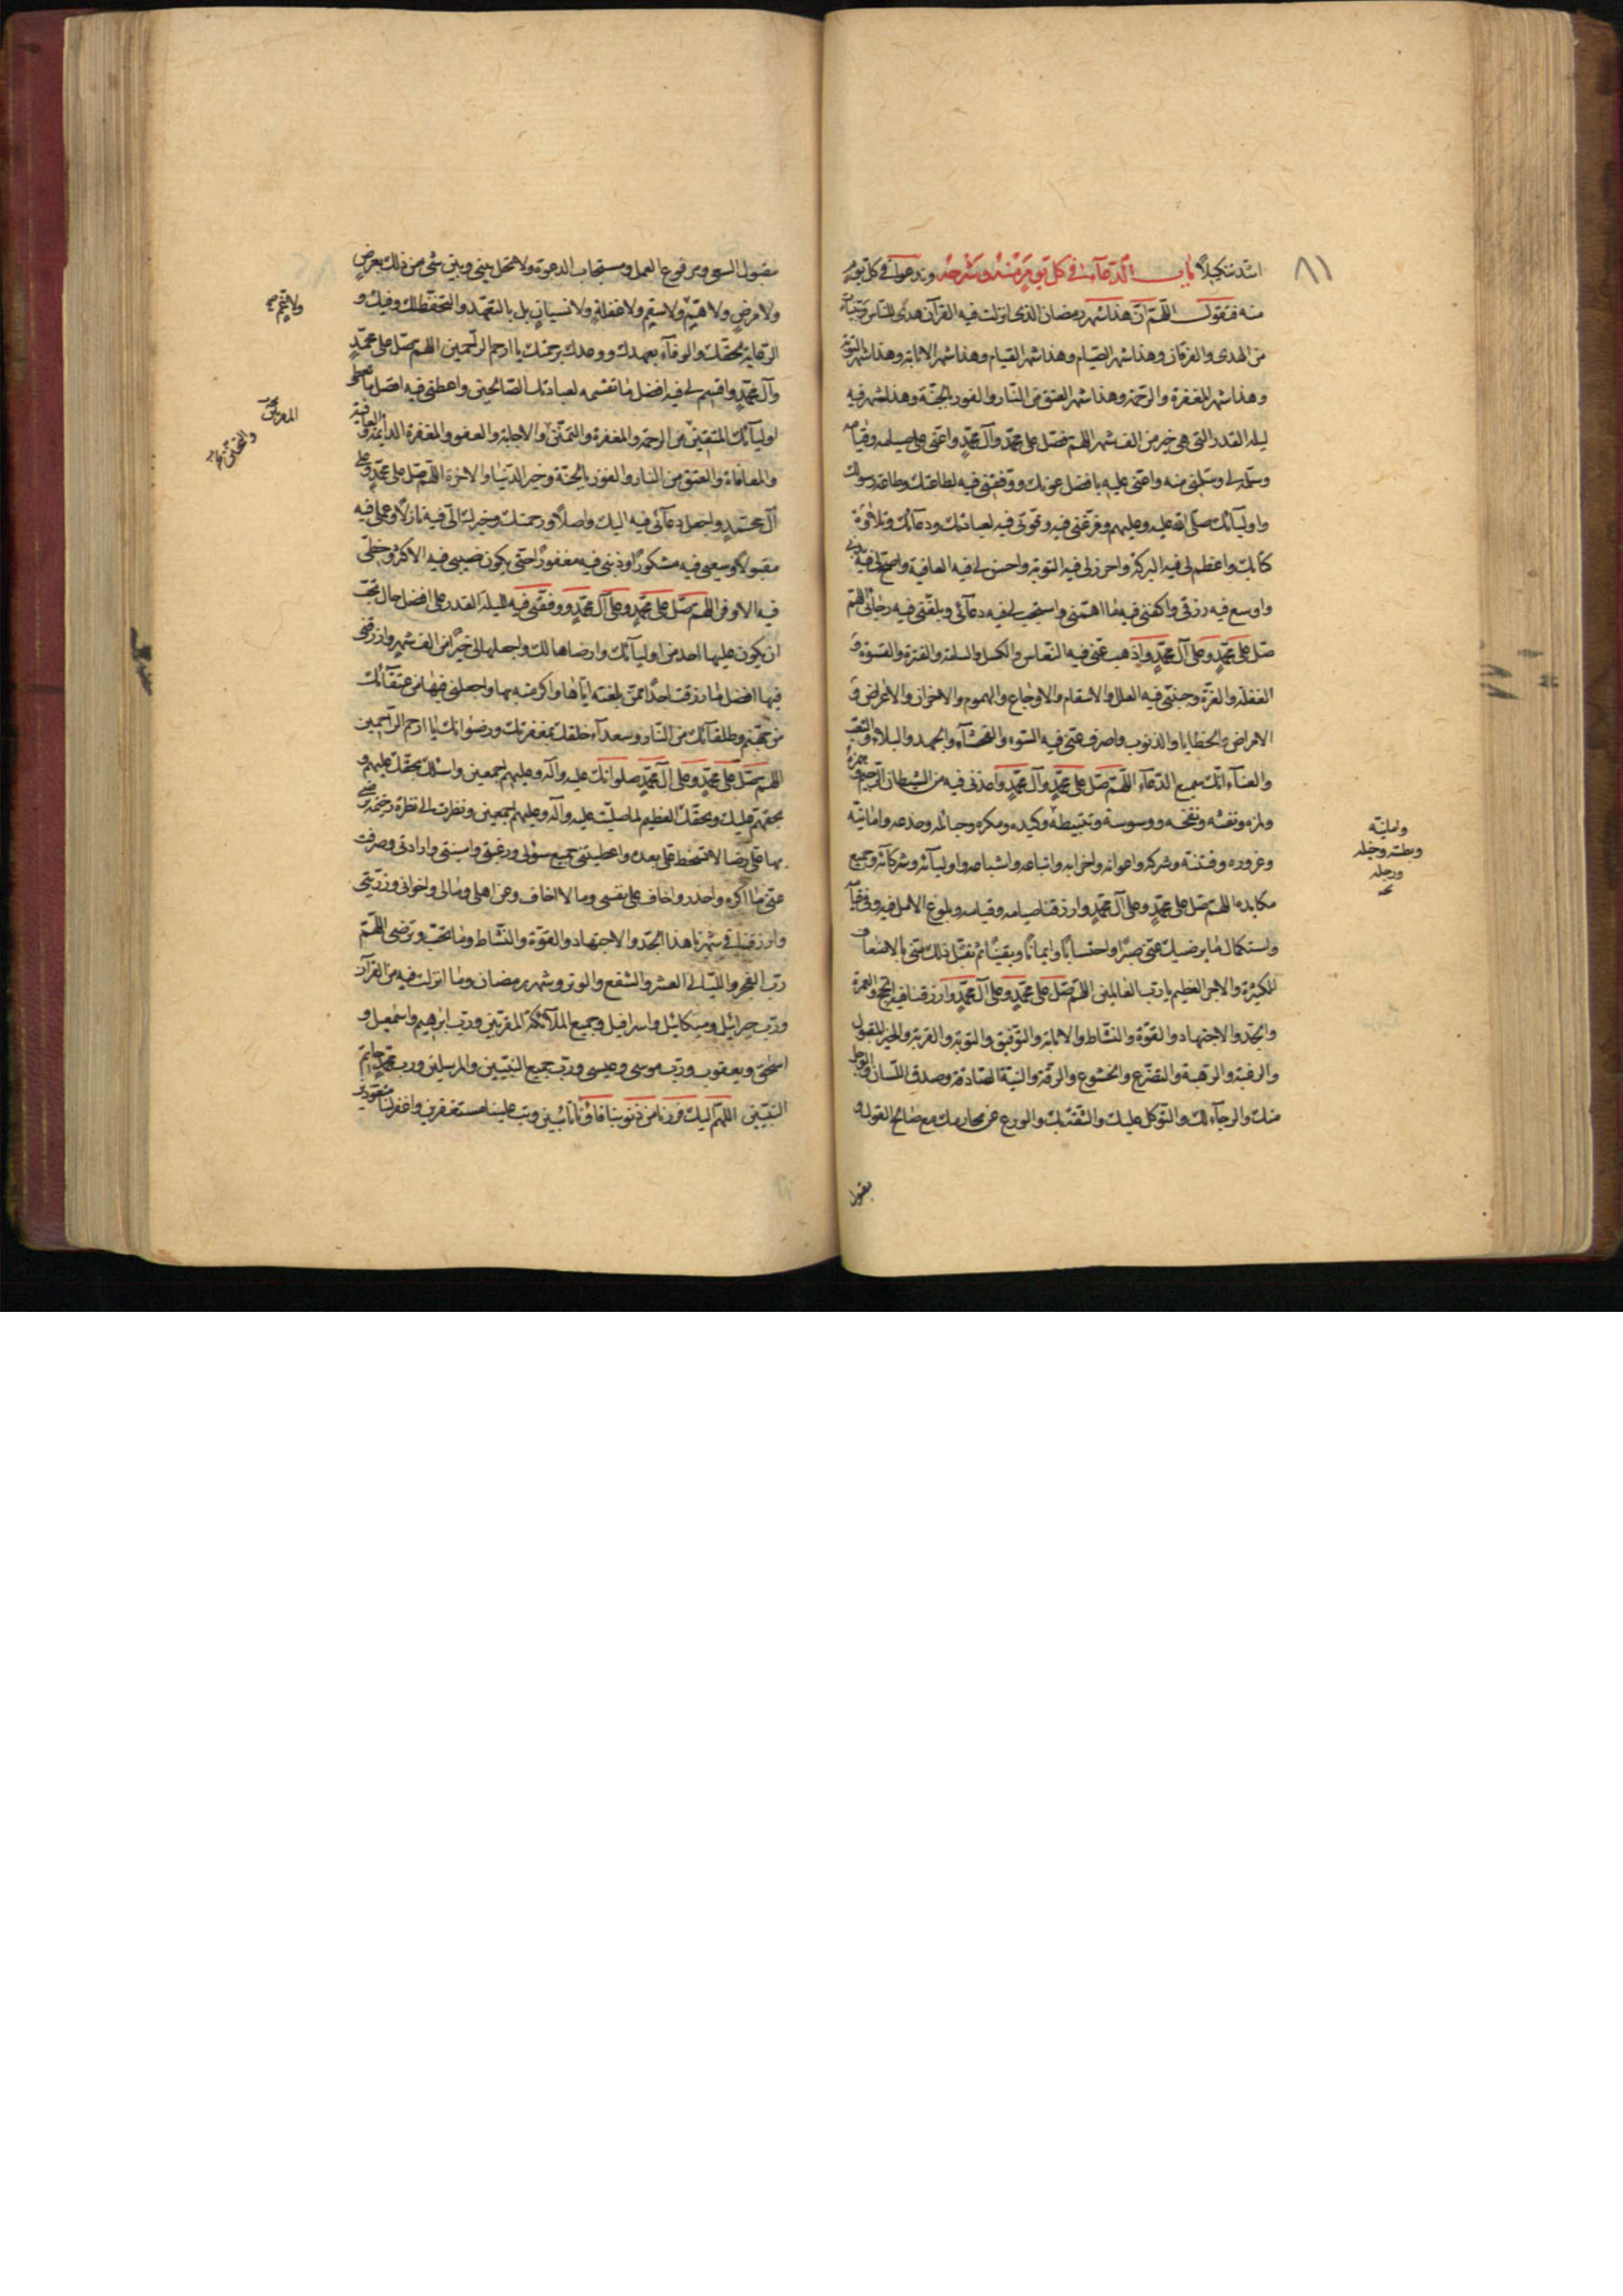 ٨١
اشد تنكيلا باب الدعآء في كل يوم منه وشرحه وندعو في كل يوم
منه فتقول اللهم ان هذا شهر رمضان الذى انزلت فيه القرآن هدى للناس وبينات
من الهدى والفرقان وهذا شهر الصيام وهذا شهر القيام وهذا شهر الانابة وهذا شهر التوبة
وهذا شهر المغفرة والرحمة وهذا شهر العتق من النار والفوز بالجنة وهذا شهر فيه
ليلة القدر التى هى خير من الف شهر اللهم فصل على محمد وآل محمد واعنى على صيامه وقيامه
وسلمه لى وسلمنى منه واعنى عليه بافضل عونك ووفقنى فيه لطاعتك وطاعة رسولك
واوليآئك صلى الله عليه وعليهم وفرغنى فيه وقونى فيه لعبادتك ودعآئك وتلاوة
كتابك واعظم لى فيه البركة واحرز لى فيه التوبة واحسن لى فيه العافية واصح لى فيه بدنى
واوسع فيه رزقى واكفنى فيه ما اهمنى واستجب لى فيه دعآئى وبلغنى فيه رجآئى اللهم
صل على محمد وعلى آل محمد واذهب عنى فيه النعاس والكسل والسامة والفترة والقسوة و
الغفلة والغرة وجنبنى فيه العلل والاسقام والاوجاع والهموم والاحزان والاعراض و
الامراض والخطايا والذنوب واصرف عنى فيه السوء والفحشآء والجهد والبلاء والتعب
والعنآء انك سميع الدعآء اللهم صل على محمد وآل محمد واعذنى فيه من الشيطان الرجيم وهمزه
ولمزه ونفثه ونفخه ووسوسته وتثبيطه وكيده ومكره وحبائله وخدعه وامانيه
وغروره وفتنته وشركه واعوانه واحزابه واتباعه واشياعه واوليآئه وشركآئه وجميع
مكايده اللهم صل على محمد وعلى آل محمد وارزقنا صيامه وقيامه وبلوغ الامل فيه وفى قيامه
واستكمال ما يرضيك عنى صبرا واحتسابا وايمانا ويقينا ثم تقبل ذلك منى بالاضعاف
الكثيرة والاجر العظيم يا رب العالمين اللهم صل على محمد وعلى آل محمد وارزقنا فيه الحج والعمرة
والجد والاجتهاد والقوة والنشاط والانابة والتوفيق والتوبة والقربة والخير المقبول
والرغبة والرهبة والتضرع والخشوع والرقة والنية الصادقة وصدق اللسان والوجل
منك والرجآء لك والتوكل عليك والثقة بك والورع عن محارمك مع صالح القول و
مقبول
وامانيه
وبطشه وخيله
ورجله
مقبول السعى ومرفوع العمل ومستجاب الدعوة ولا تحل بينى وبين شئ من ذلك بعرض
ولا مرض ولا هم ولا سقم ولا غفلة ولا نسيان بل بالتعهد والتحفظ لك وفيك و
الرعاية لحقك والوفآء بعهدك ووعدك برحمتك يا ارحم الراحمين اللهم صل على محمد
وآل محمد واقسم لى فيه افضل ما تقسمه لعبادك الصالحين واعطنى فيه افضل ما تعطى
اوليآئك المتقين من الرحمة والمغفرة والتحنن والاجابة والعفو والمغفرة الدائمة والعافية
والمعافاة والعتق من النار والفوز بالجنة وخير الدنيا والآخرة اللهم صل على محمد وعلى
آل محمد واجعل دعآئى فيه اليك واصلا ورحمتك وخيرك الى فيه نازلا وعملى فيه
مقبولا وسعيى فيه مشكورا وذنبى فيه مغفورا حتى يكون نصيبى فيه الاكثر وحظى
فيه الاوفر اللهم صل على محمد وعلى آل محمد ووفقنى فيه لليلة القدر على افضل حال تحب
ان يكون عليها احد من اوليآئك وارضاها لك واجعلها لى خيرا من الف شهر وارزقنى
فيها افضل ما رزقت احدا ممن بلغته اياها واكرمته بها واجعلنى فيها من عتقآئك
من جهنم وطلقآئك من النار وسعدآء خلقك بمغفرتك ورضوانك يا ارحم الراحمين
اللهم صل على محمد وعلى آل محمد صلواتك عليه وآله وعليهم اجمعين واسئلك بحقك عليهم و
بحقهم عليك وبحقك العظيم لما صليت عليه وآله وعليهم اجمعين ونظرت الى نظرة رحيمة ترضى
بها عنى رضا لا تسخط على بعده واعطيتنى جميع سؤلى ورغبتى وامنيتى وارادتى وصرفت
عنى ما اكره واحذر واخاف على نفسى وما لا اخاف وعن اهلى ومالى واخوانى وذريتى
وارزقنا فى شهرنا هذا الجد والاجتهاد والقوة والنشاط وما تحب وترضى اللهم
رب الفجر والليالى العشر والشفع والوتر وشهر رمضان وما انزلت فيه من القرآن
ورب جبرائيل وميكائيل واسرافيل وجميع الملآئكة المقربين ورب ابرهيم واسمعيل و
اسحق ويعقوب ورب موسى وعيسى ورب جميع النبيين والمرسلين ورب محمد خاتم
النبيين اللهم اليك فررنا من ذنوبنا فآونا تآئبين وتب علينا مستغفرين واغفر لنا متعوذين
ولا غم
والتحنن